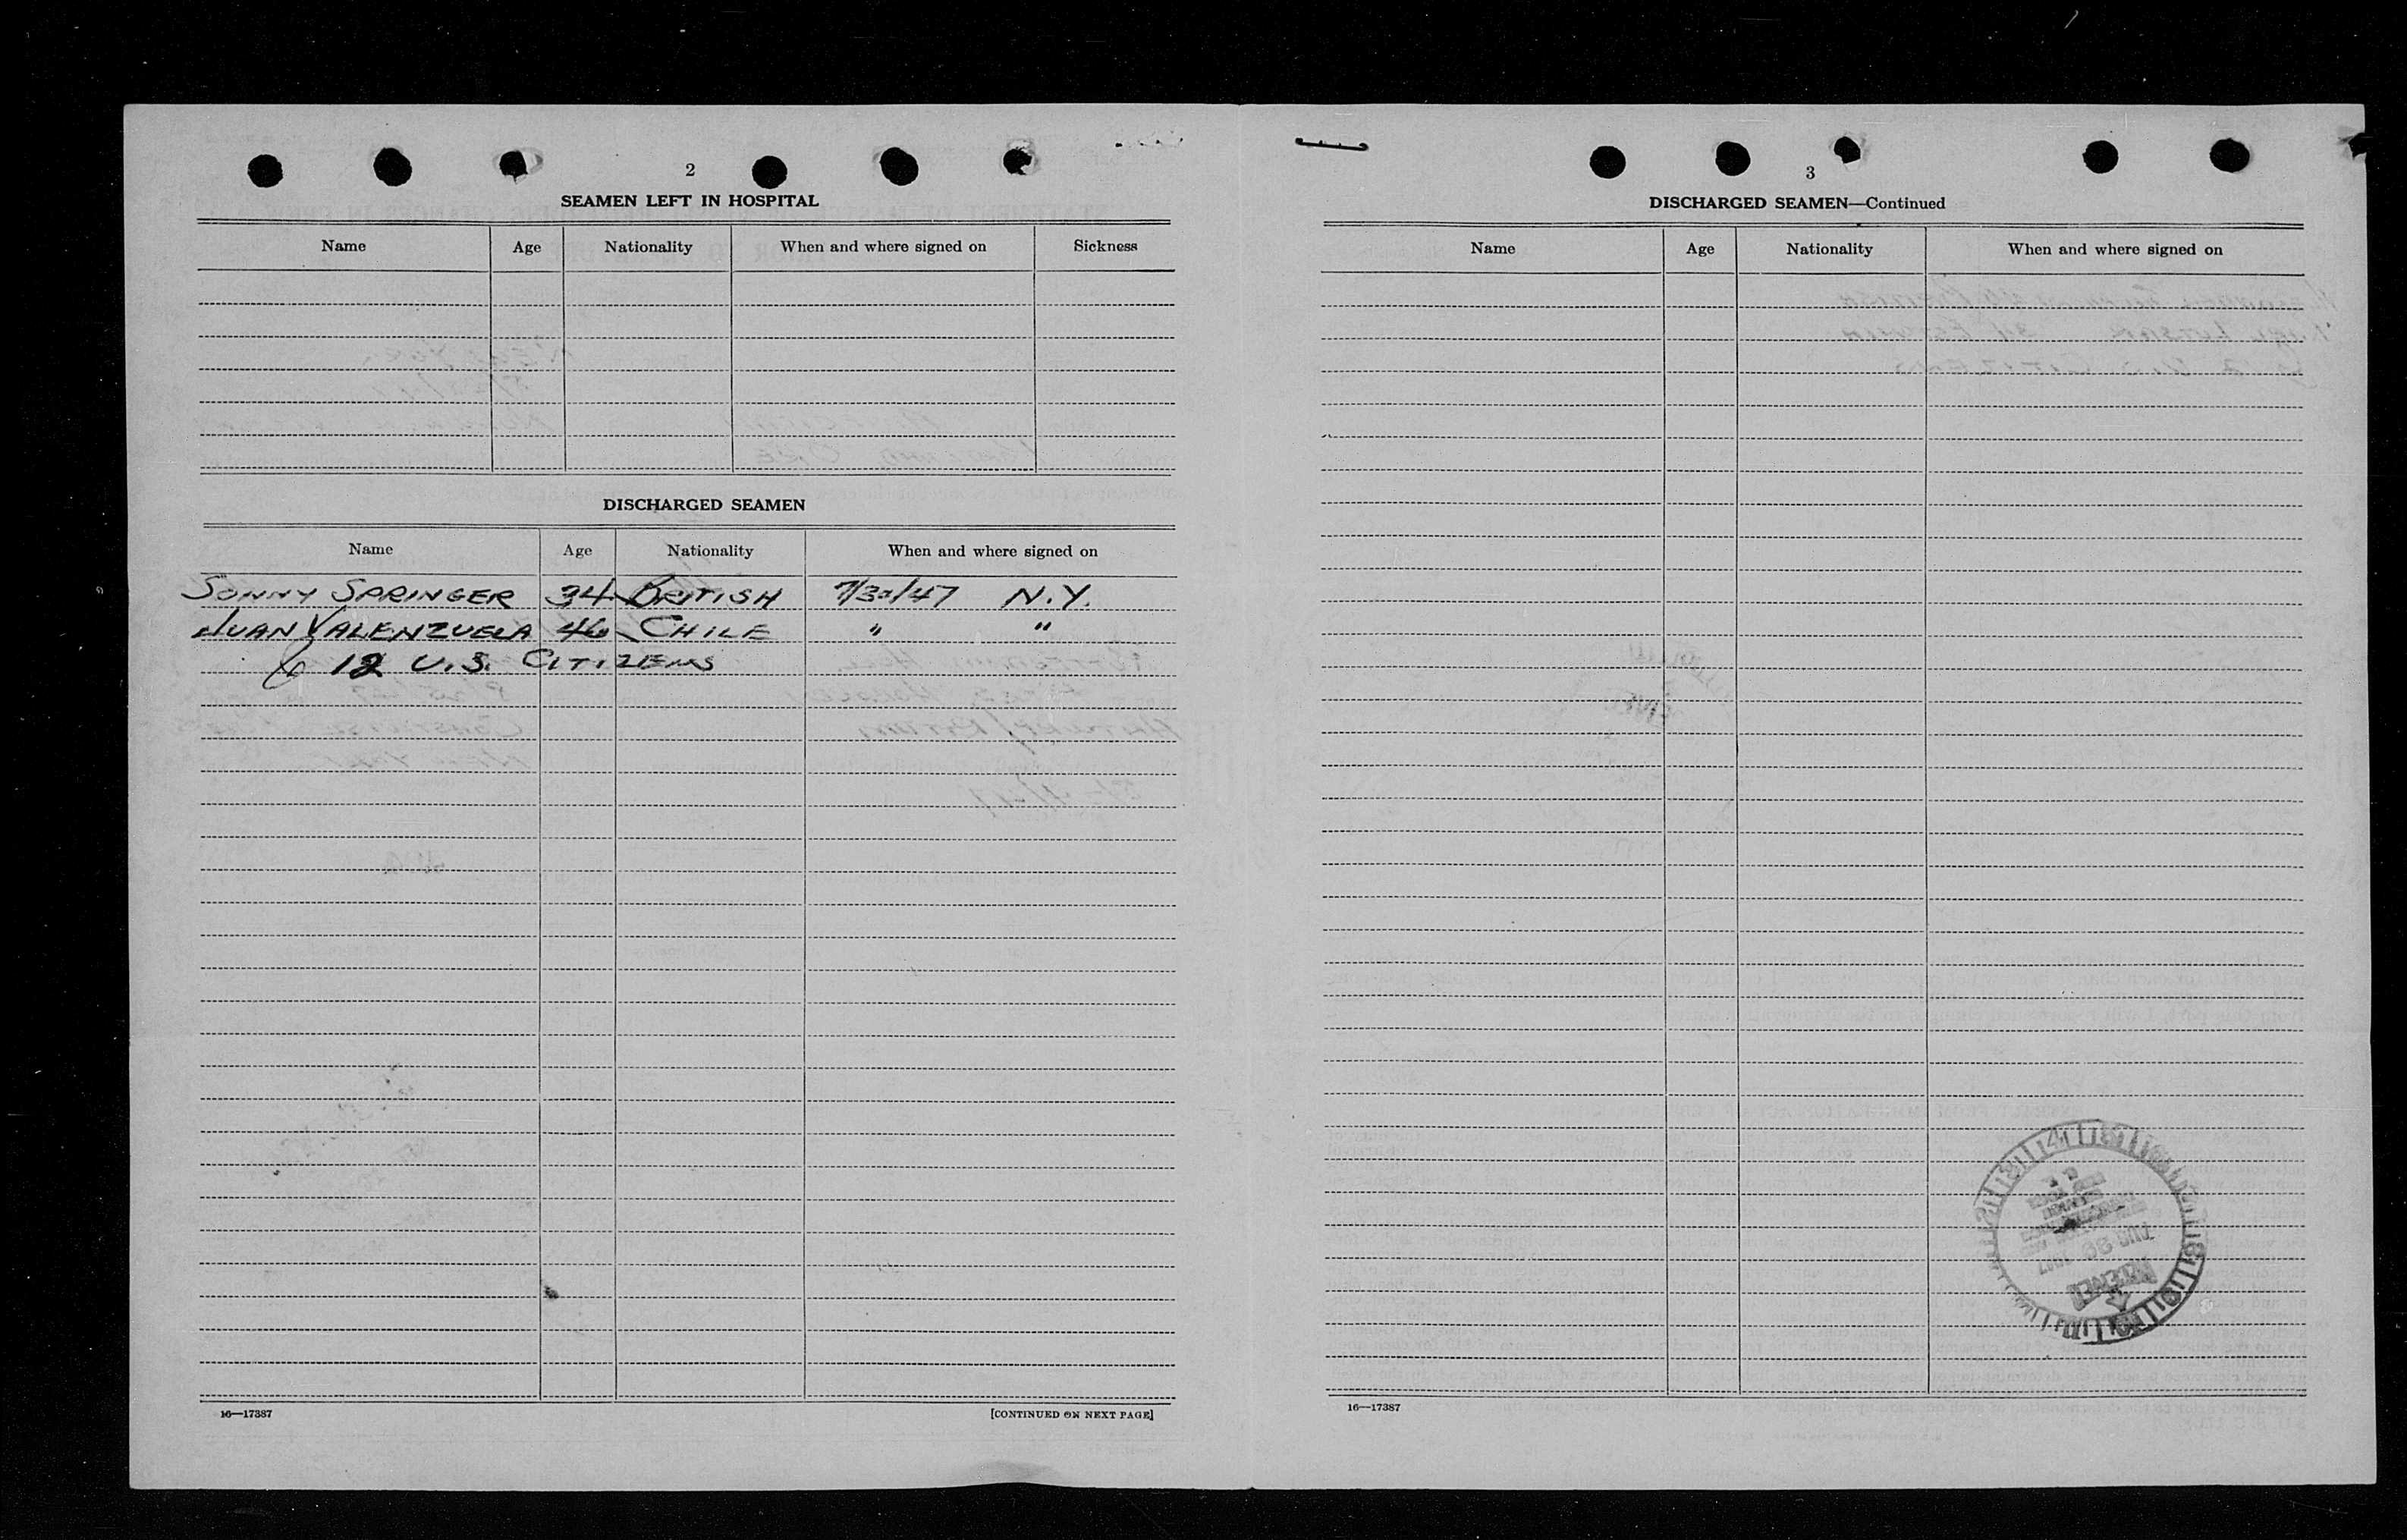 2
SEAMEN LEFT IN HOSPITAL
Name Age Nationality When and where signed on Sickness
DISCHARGED SEAMEN
Name Age Nationality When and where signed on
SONNY SPRINGER 34 BRITISH 7/30/47 N.Y.
JUAN VALENZUELA 46 CHILE " "
& 12 U.S. CITIZENS
16—17387 [CONTINUED ON NEXT PAGE]
3
DISCHARGED SEAMEN—Continued
Name Age Nationality When and where signed on
RECEIVED
16—17387